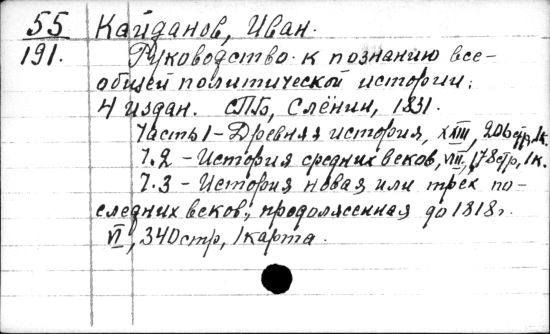 55 Кайданов, Иван.
191. Руководство к познанию все-
общей политической истории.
4 издан. СПб, Слёнин, 1831.
Часть 1 - Древняя история, XXIII, 206 стр, 1к.
Ч. 2 - История средних веков, VIII, 178 стр, 1к.
Ч. 3 - История новая или трёх по-
следних веков, продолженная до 1818 г.
VI, 340 стр, 1 карта.